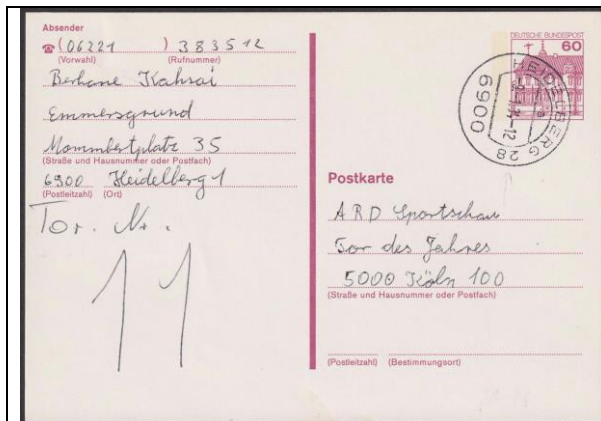 Absender
☎ (06221 ) 383512
(Vorwahl) (Rufnummer)
Berhane Kahsai
Emmersgrund
Mommbertplatz 35
(Straße und Hausnummer oder Postfach)
6900 Heidelberg 1
(Postleitzahl) (Ort)
Tor. Nr.
11
DEUTSCHE BUNDESPOST
60
HEIDELBERG 28
6900
Postkarte
ARD Sportschau
Tor des Jahres
5000 Köln 100
(Straße und Hausnummer oder Postfach)
(Postleitzahl) (Bestimmungsort)